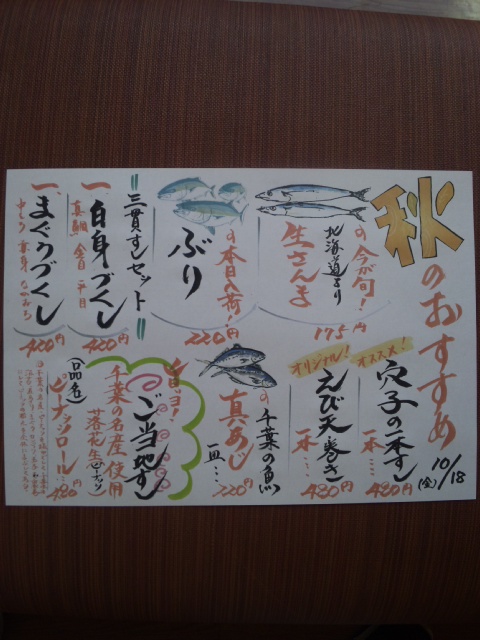 秋のおすすめ
10/18
(金)
の今が旬!
北海道より
生さんま
175円
の本日入荷!
ぶり
220円
三貫すしセット
一、白身づくし
真鯛
平目
420円
一、まぐろづくし
中とろ 赤身
420円
オススメ!
穴子の一本すし
一本…
480円
オリジナル!
えび天巻き
一本…
480円
の千葉の魚
真あじ
一皿…
220円
ご当地すし
千葉の名産
落花生(ピーナッツ)使用
(品名)
ピーナッツロール…
480円